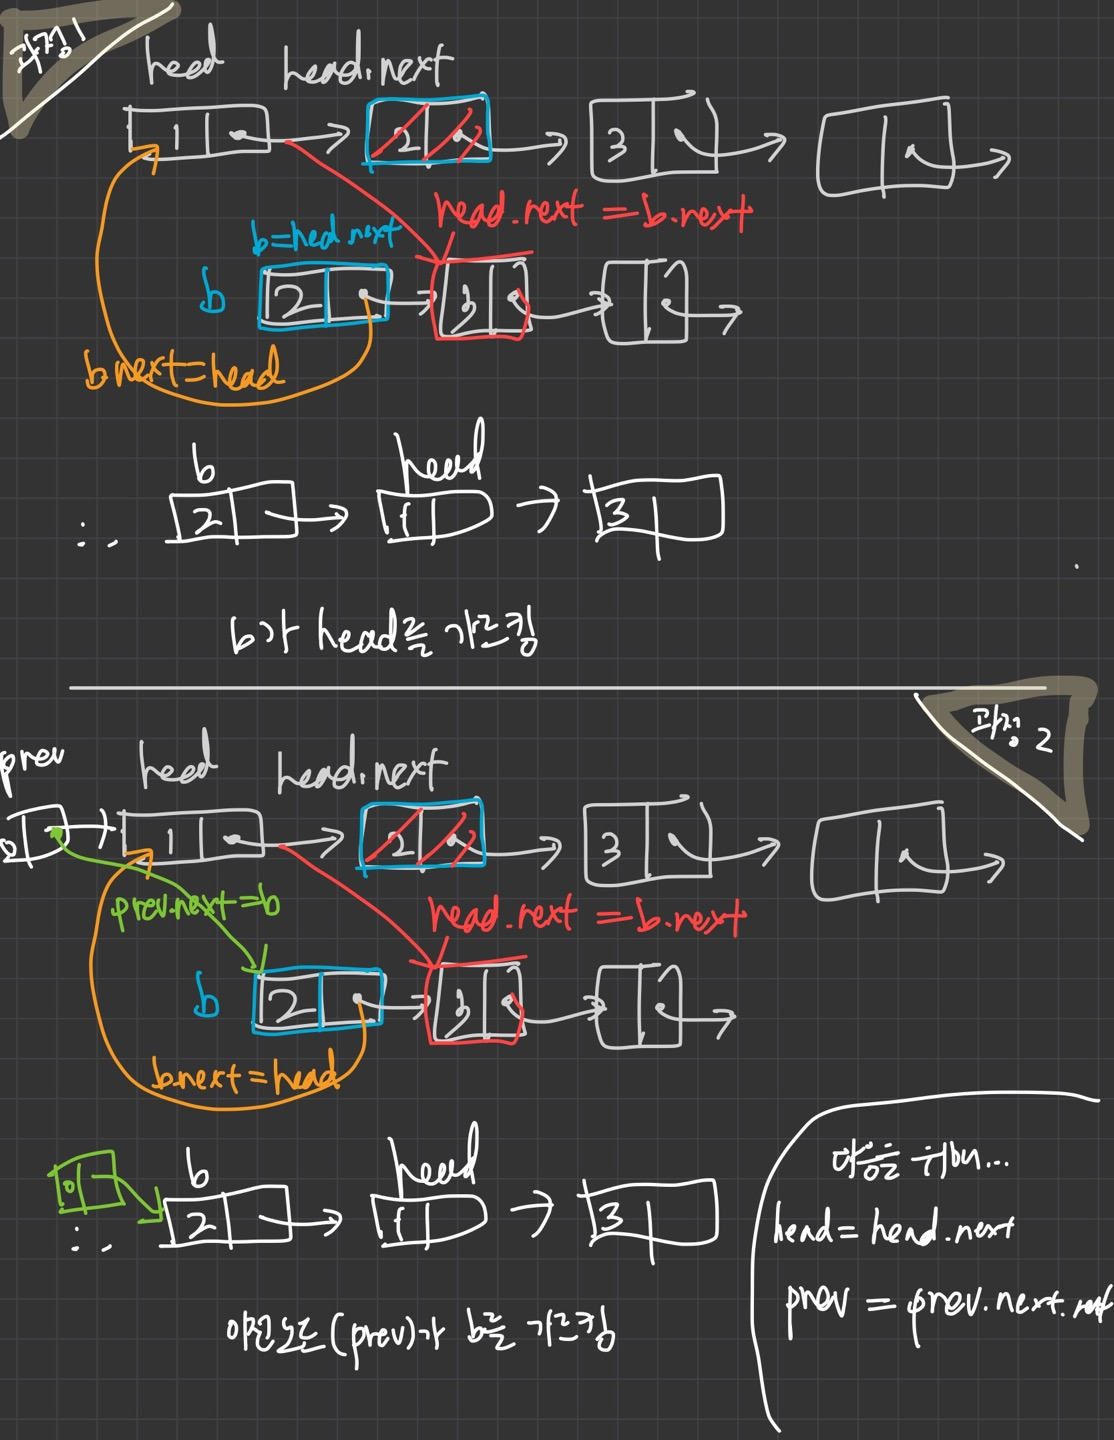 과정1
head head.next
1 2 3
head.next = b.next
b=head.next
b 2 3
b.next=head
b head
∴ 2 1 3
b가 head를 가르킴
과정 2
prev head head.next
0 1 2 3
prev.next=b
head.next = b.next
b 2 3
b.next = head
b head
0
∴ 2 1 3
이전노드(prev)가 b를 가르킴
다음을 위해...
head = head.next
prev = prev.next.next